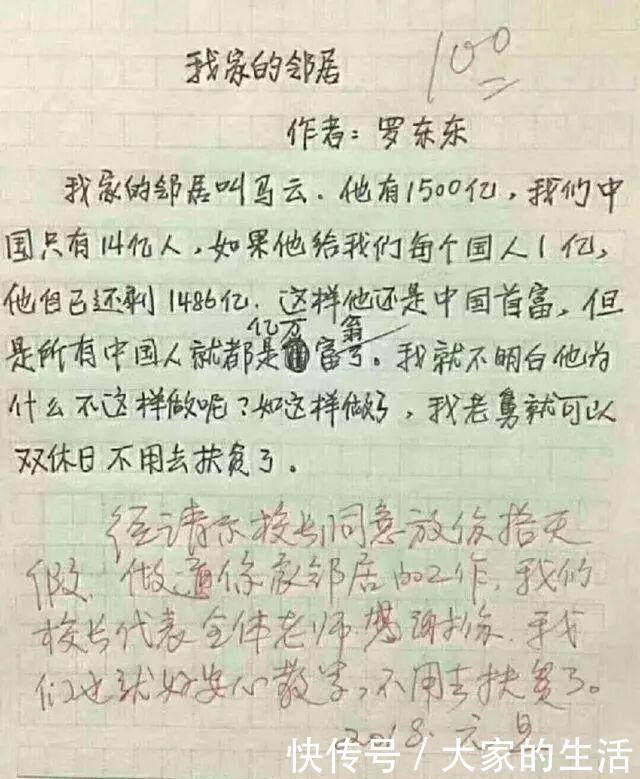 我家的邻居
100
作者：罗东东
我家的邻居叫马云．他有1500亿，我们中
国只有14亿人，如果他给我们每个国人1亿，
他自己还剩1486亿．这样他还是中国首富，但
亿万 翁
是所有中国人就都是富了。我就不明白他为
什么不这样做呢？如这样做了，我老舅就可以
双休日不用去扶贫了。
经请示校长同意放你搭天
假．做通你家邻居的工作，我们
校长代表全体老师感谢你．我
们也就好安心教学，不用去扶贫了。
2018.六.
快传号/大家的生活